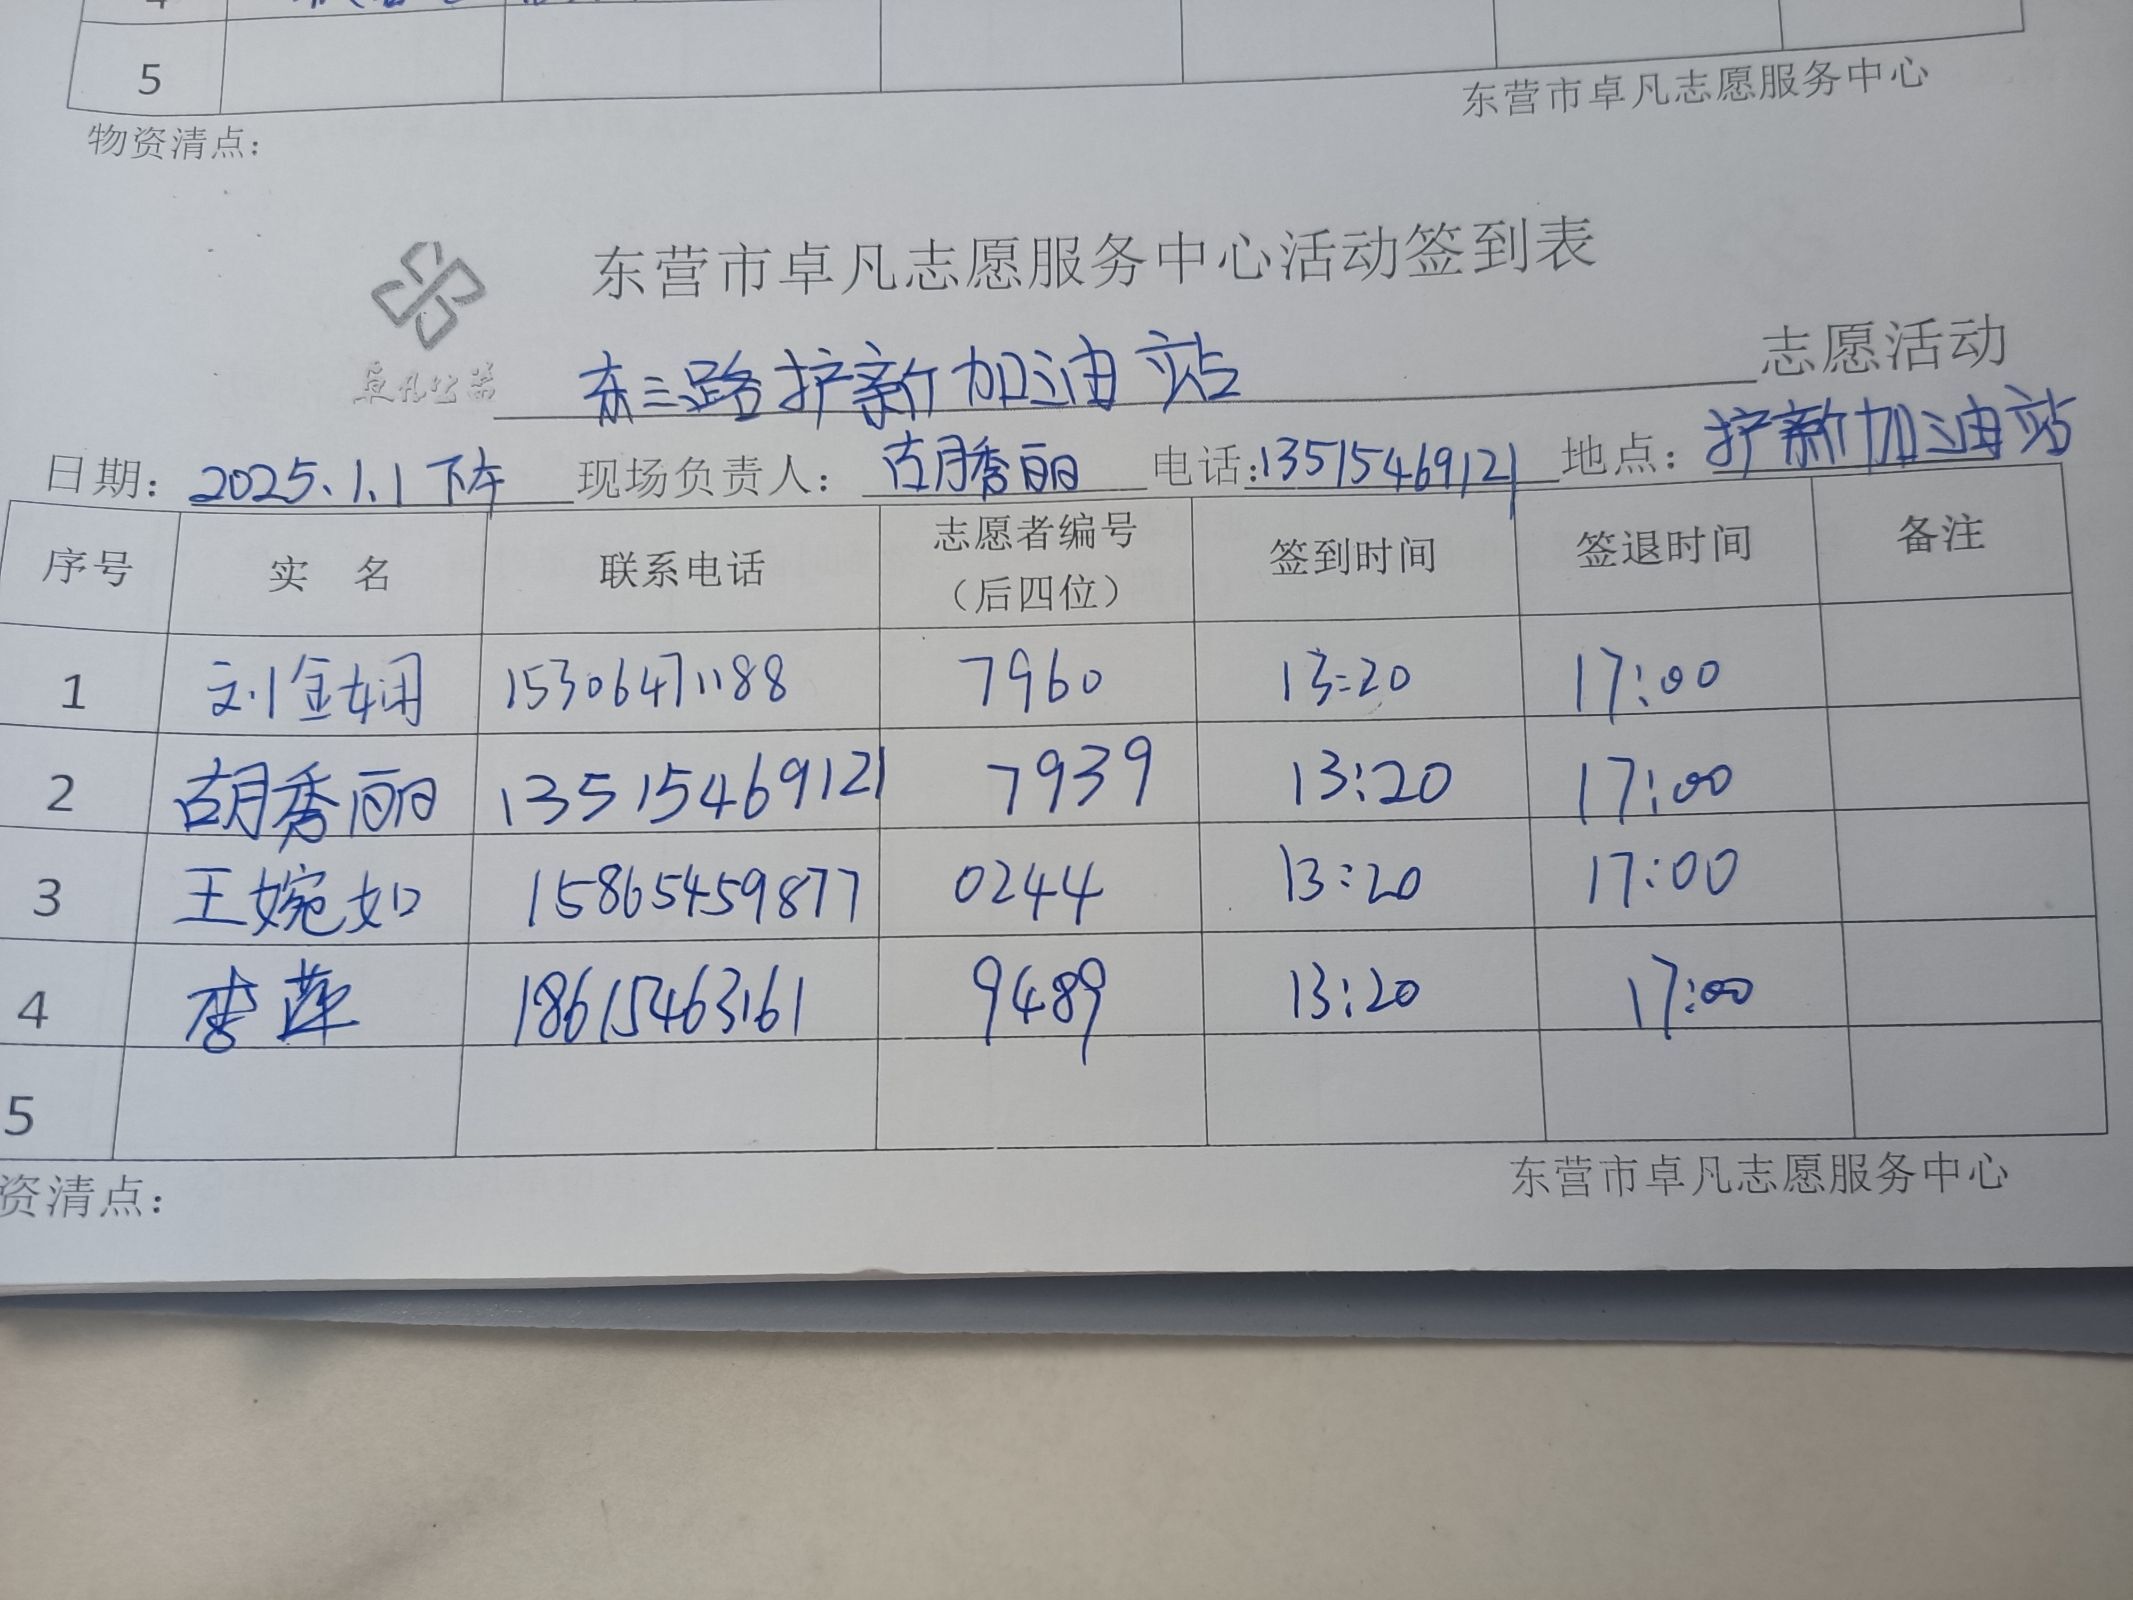 4
5
东营市卓凡志愿服务中心
物资清点：
东营市卓凡志愿服务中心活动签到表
卓凡公益
东三路护新加油站 志愿活动
日期：2025.1.1下午 现场负责人：胡秀丽 电话：13515469121 地点：护新加油站
序号 实 名 联系电话 志愿者编号（后四位） 签到时间 签退时间 备注
1 刘金娴 15306471188 7960 13:20 17:00
2 胡秀丽 13515469121 7939 13:20 17:00
3 王婉如 15865459877 0244 13:20 17:00
4 李萍 18615463161 9489 13:20 17:00
5
资清点：
东营市卓凡志愿服务中心